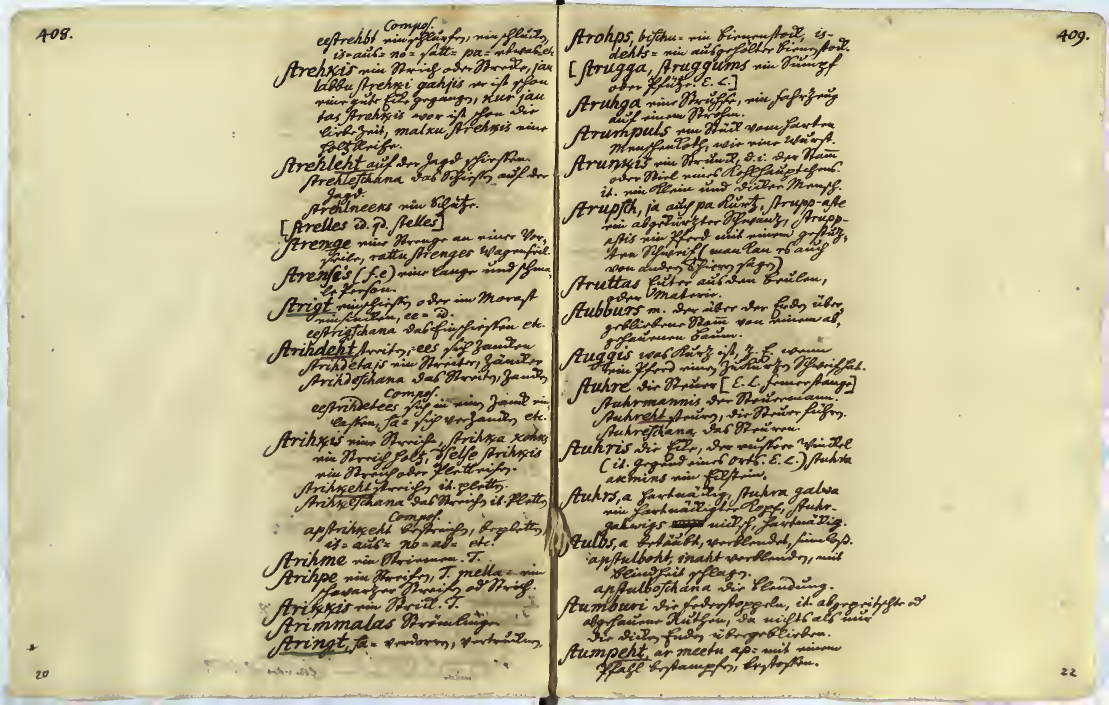 408.
Compos.
eestrehbt einschlürfen, einschlucken
is- aus- no- satt- pa- etwas etc.
Strehķis ein Strich oder Strecke, jau
labbu strehķi gahjis er ist schon
eine gute Eile gegangen, kur jau
tas strehķis wo ist schon die
liebe Zeit, malku strehķis eine
Holtzreihe.
Strehleht auf der Jagd schiessen.
strehleschana das Schiessen auf der
Jagd.
strehlneeks ein Schütze.
[Strelles id. qd. stelles]
Strenge eine Strenge an einer Vor-
seile, rattu strenges Wagenseile.
Strensis (f. e) eine lange und schma-
le Person.
Strigt einschiessen oder im Morast
einsincken, ee- id.
eestrigschana das Einschiessen etc.
Strihdeht streiten, -ees sich zancken
Strihdetajs ein Streiter, Zäncker
Strihdeschana das Streiten, Zancken
Compos.
eestrihdetees sich in einen Zanck ein
lassen, sa- sich verzancken etc.
Strihķis eine Streiche, strihķa kohks
ein Streich holtz, dselse strihķis
ein Streich oder Pletteisen.
Strihķeht streichen it. pletten
Strihķeschana das Streichen it. Pletten
Compos.
apstrihķeht bestreichen, bepletten,
is- aus- no- ab- etc.
Strihme ein Striemen. T.
Strihpe ein Streifen, T. mella- ein
schwartzer Streifen od Strich.
Strikkis ein Strick. T.
Strimmalas Strömlinge
Stringt, sa- verdorren, vertrucknen
20
409.
Strohps, bischu- ein Bienenstock, is-
dehts- ein ausgehölter Bienenstock.
[Strugga, struggums ein Sumpf
oder Pfütze. E. L.]
Struhga eine Struhse, ein Fahrzeug
auf einem Strohm.
Strumpuls ein Stück vom harten
Menschenkoth, wie eine Wurst.
Strunķis ein Strunck, d. i. der Stam
oder Stiel eines Kohlhauptchens.
it. ein klein und dicker Mensch.
Strupsch, ja auch pa kurtz, strupp-aste
ein abgekürtzter Schwantz, strupp-
astis ein Pferd mit einem gestutz-
ten Schweif (man kan es auch
von andern Thieren sagen)
Struttas Euter aus den Beulen,
oder Materie.
Stubburs m. der über der Erden über-
gebliebene Stam von einem ab-
gehauenen Baum.
Stuggis was kurtz ist, z. E. wenn
ein Pferd einen zu kurtzen Schweif hat.
Stuhre die Steuer [E. L. Femerstange]
Stuhrmannis der Steuermann.
Stuhreht steuren, die Steuer führen.
Stuhreschana das Steuren.
Stuhris die Eke, der eussere Winckel
(it. Gegend eines Orts. E. L.) stuhra
akmins ein Eckstein.
Stuhrs, a hartnäckig, stuhra galwa
ein hartnäckigter Kopf, stuhr-
galwigs nückisch, hartnäckig.
Stulbs, a betäubt, verblendet, sinnloß.
apstulboht, inaht verblenden, mit
Blindheit schlagen.
apstulboschana die Blendung.
Stumburi die Federstoppeln, it. abgepeitschte od
abgehauene Ruthen, da nichts als nur
die dicken Enden übergeblieben.
Stumpeht, ar meetu ap- mit einem
Pfahl bestampfen, bestossen.
22